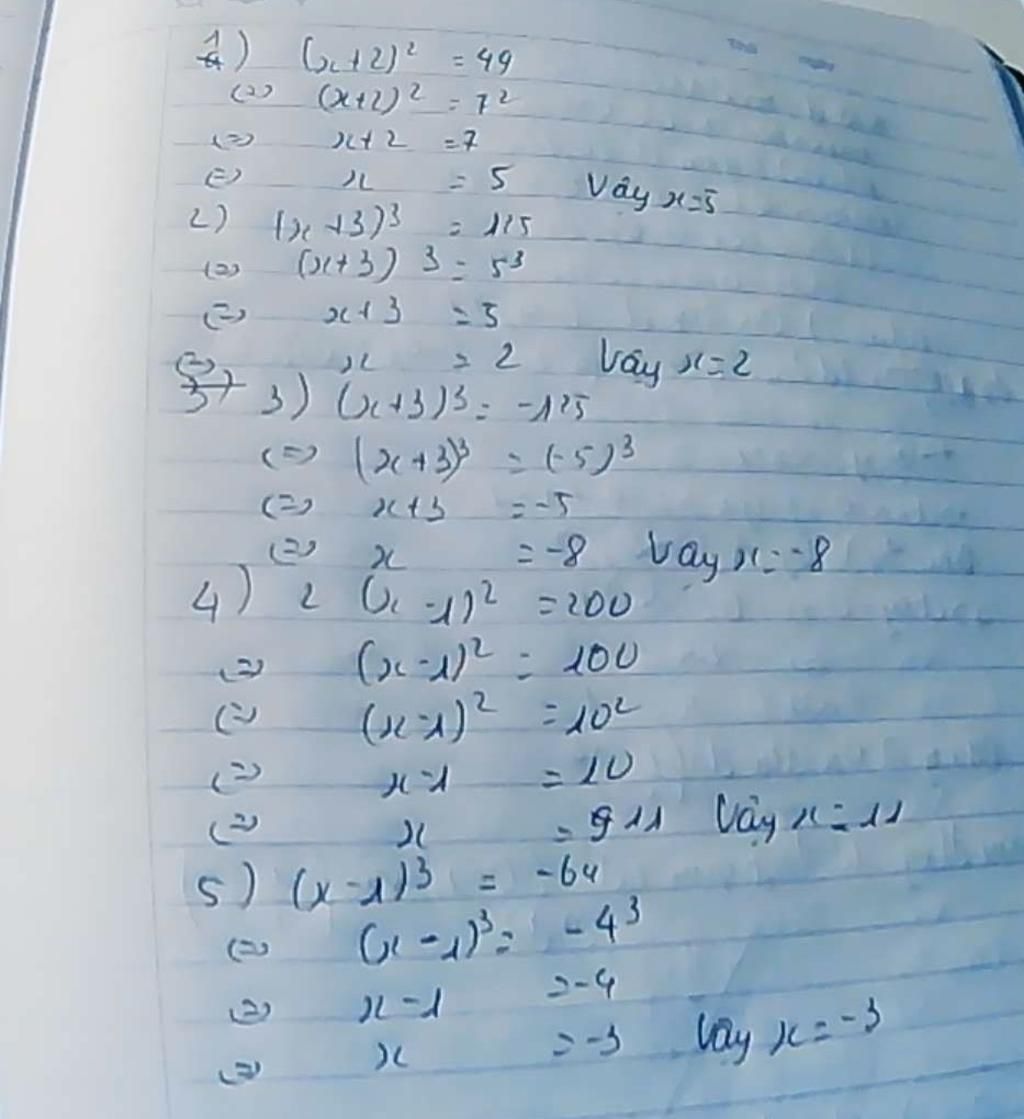 1) (x+2)² = 49
(=) (x+2)² = 7²
(=) x+2 = 7
(=) x = 5 Vây x=5
2) (x+3)³ = 125
(=) (x+3)³ = 5³
(=) x+3 = 5
(=) x = 2 Vây x=2
3) (x+3)³ = -125
(=) (x+3)³ = (-5)³
(=) x+3 = -5
(=) x = -8 Vây x=-8
4) 2 (x-1)² = 200
(=) (x-1)² = 100
(=) (x-1)² = 10²
(=) x-1 = 10
(=) x = 11 Vây x=11
5) (x-1)³ = -64
(=) (x-1)³ = -4³
(=) x-1 = -4
(=) x = -3 Vây x=-3